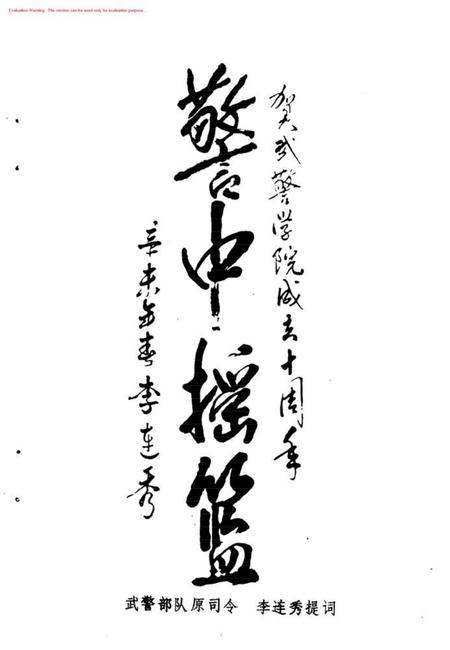 Evaluation Warning : The version can be used only for evaluation purpose...
贺武警学院成立十周年
警中摇篮
辛未年春李连秀
武警部队原司令 李连秀提词